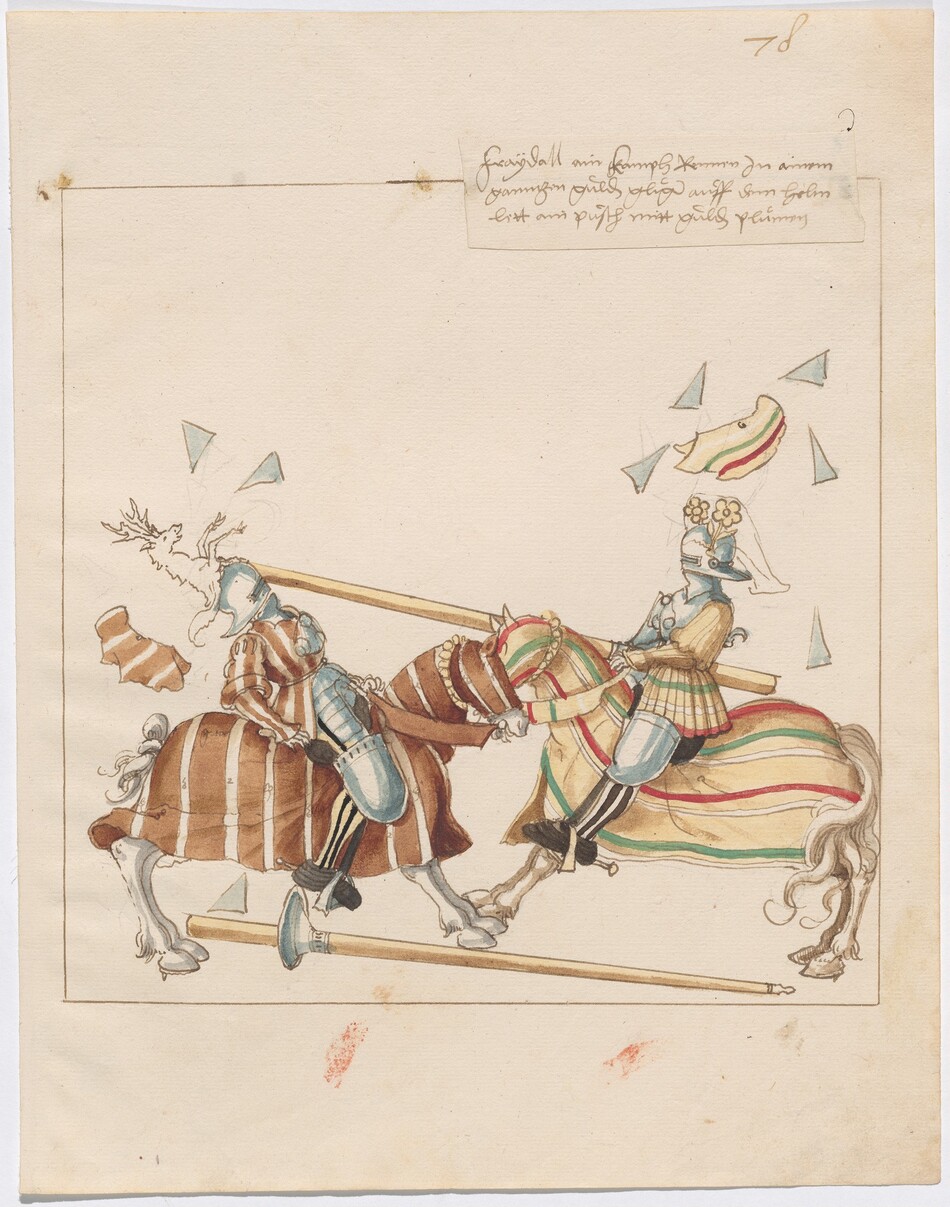 78
fraÿdall ain kamph Rennen In ainem
gantzen guld auff dem helm
lett ain pusch mitt guld plůmen